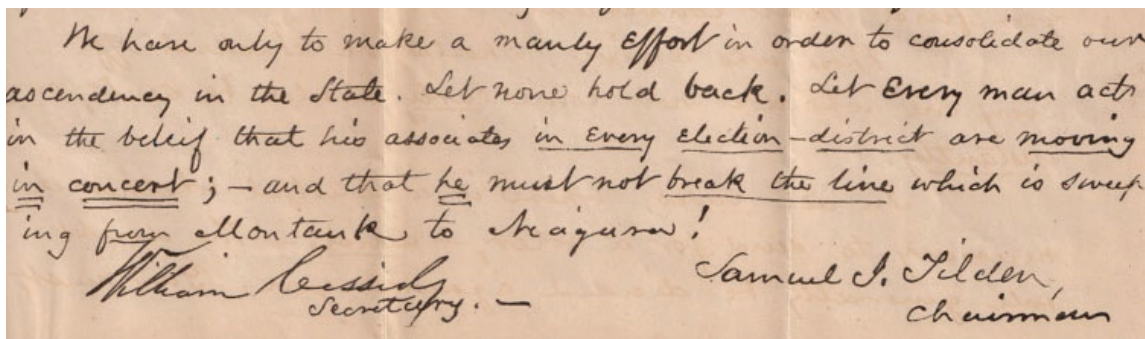 We have only to make a manly Effort in order to consolidate our
ascendency in the State. Let none hold back. Let Every man acts
in the beleif that his associates in Every Election-district are moving
in concert; – and that he must not break the line which is sweep
ing from Montauk to Niagara!
William Cassidy Samuel J. Tilden,
Secretary. – Chairman